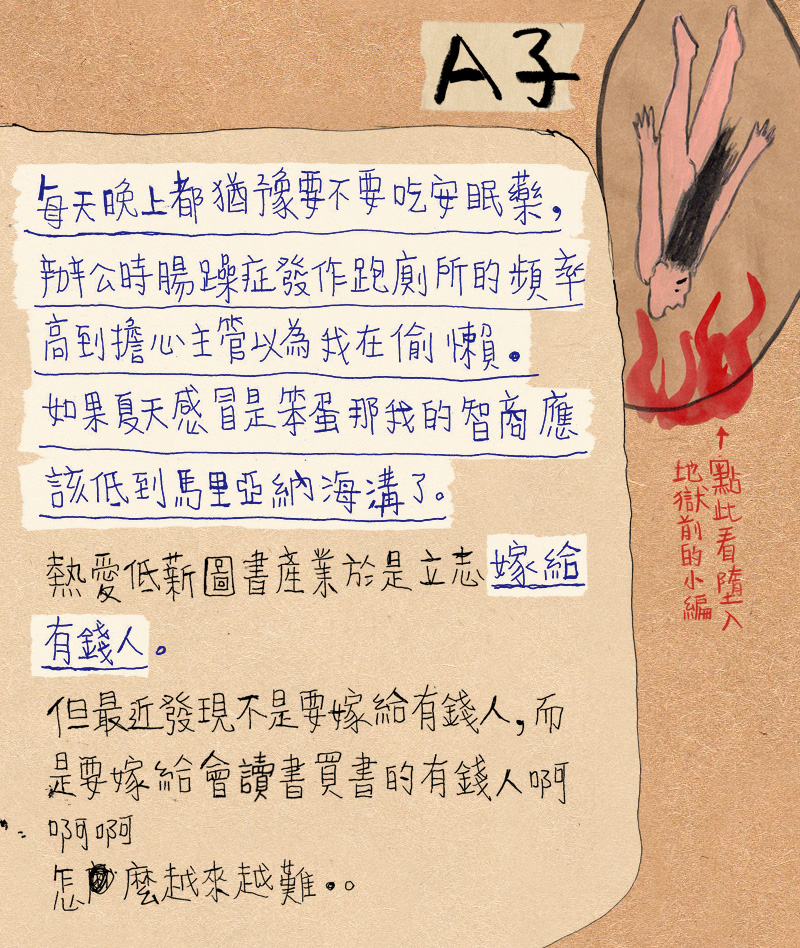 A子
每天晚上都猶豫要不要吃安眠藥,
辦公時腸躁症發作跑廁所的頻率
高到擔心主管以為我在偷懶。
如果夏天感冒是笨蛋那我的智商應
該低到馬里亞納海溝了。
熱愛低薪圖書產業於是立志嫁給
有錢人。
但最近發現不是要嫁給有錢人,而
是要嫁給會讀書買書的有錢人啊
啊啊
怎麼越來越難。。
↑點此看墮入
地獄前的小編